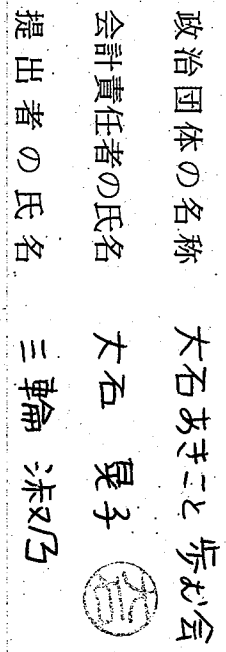 政治団体の名称 大石あきこと歩む会
会計責任者の氏名 大石 晃子
提出者の氏名 三輪 淑乃